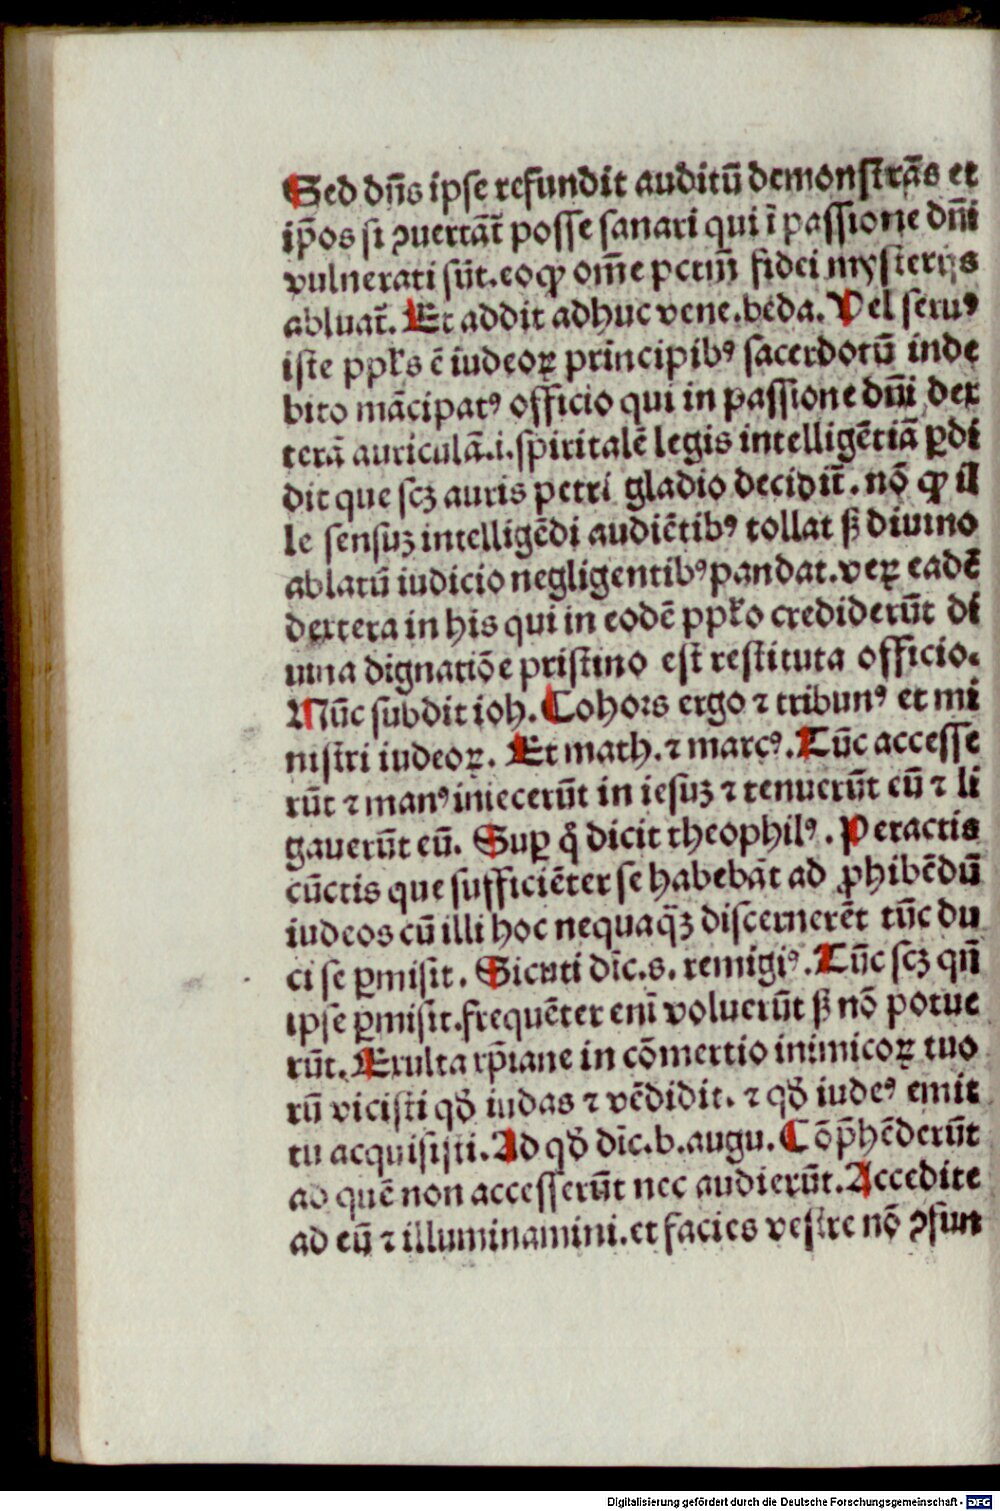 Sed dñs ipse refundit auditū demonstrãs et
ip̃os si ꝯuertãt᷑ posse sanari qui ĩ passione dñi
vulnerati sūt. eoꝙ om̃e pctm̃ fidei mysterijs
abluat᷑. Et addit adhuc vene. beda. Vel seruꝰ
iste ppl̃s ē iudeoꝝ principibꝰ sacerdotū inde
bito mãcipatꝰ officio qui in passione dñi dex
terã auriculã .i. spiritalē legis intelligētiã ꝑdi
dit que scꝫ auris petri gladio decidit᷑. nō ꝙ il
le sensuꝫ intelligēdi audiētibꝰ tollat ꝭ diuino
ablatū iudicio negligentibꝰ pandat. veꝝ eadē
dextera in his qui in eodē ppl̃o crediderūt di
uina dignatiōe pristino est restituta officio.
Nūc subdit ioh. Cohors ergo ⁊ tribunꝰ et mi
nistri iudeoꝝ. Et math. ⁊ marcꝰ. Tūc accesse
rūt ⁊ manꝰ iniecerūt in iesuꝫ ⁊ tenuerūt eū ⁊ li
gauerūt eū. Suꝑ q̊ dicit theophilꝰ. Peractis
cūctis que sufficiēter se habebãt ad ꝓhibēdū
iudeos cū illi hoc nequaq̃ꝫ discernerēt tūc du
ci se ꝑmisit. Sicuti dic̃. s. remigiꝰ. Tūc scꝫ qñ
ipse ꝑmisit. frequēter eni᷑ voluerūt ꝭ nō potue
rūt. Exulta xp̃iane in cōmertio inimicoꝝ tuo
rū vicisti qð iudas ⁊ vēdidit. ⁊ qð iudeꝰ emit
tu acquisisti. Ad qð dic̃. b. augu. Cōp̃hēderūt
ad quē non accesserūt nec audierūt. Accedite
ad eū ⁊ illuminamini. et facies vestre nō ꝯfun
Digitalisierung gefördert durch die Deutsche Forschungsgemeinschaft - DFG